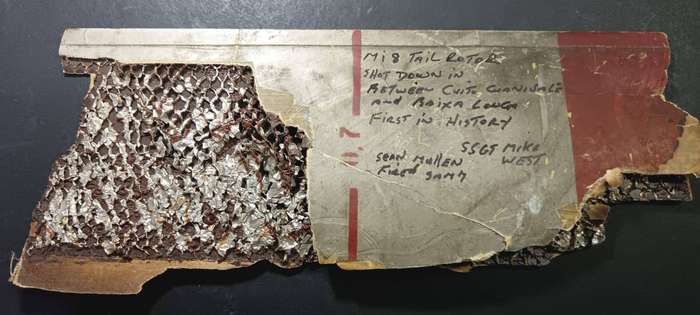 Mi 8 TAIL ROTOR
SHOT DOWN IN
BETWEEN CUITO CUANAVALE
AND BAIXA LONGA
FIRST IN HISTORY
SSGT MIKE
WEST
SEAN MULLEN
FIRED SAM 7
0,7